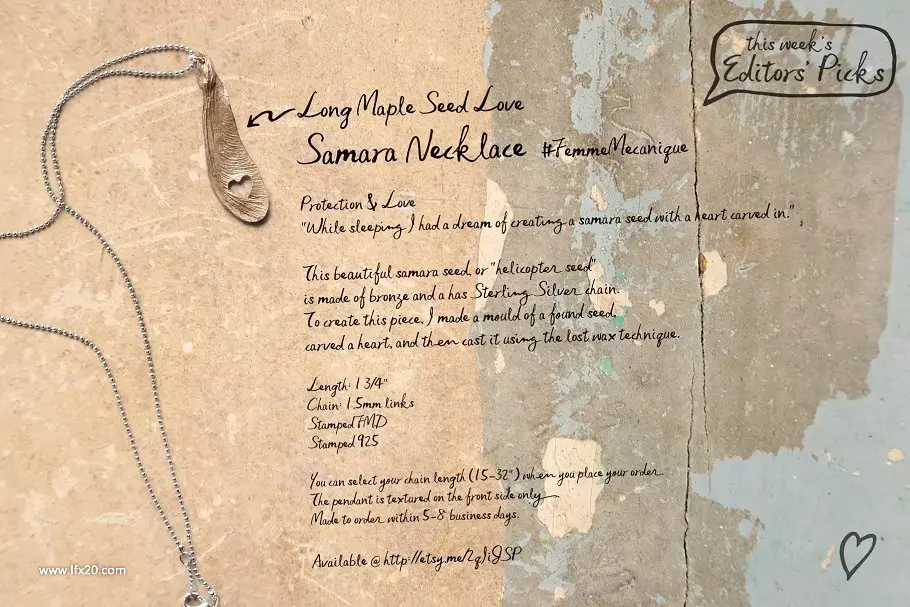 this week's
Editors' Picks
Long Maple Seed Love
Samara Necklace #FemmeMecanique
Protection & Love
"While sleeping I had a dream of creating a samara seed with a heart carved in.",
This beautiful samara seed, or "helicopter seed"
is made of bronze and a has Sterling Silver chain.
To create this piece, I made a mould of a found seed,
carved a heart, and then cast it using the lost wax technique.
Length: 1 3/4"
Chain: 1.5mm links
Stamped FMD
Stamped 925
You can select your chain length (15-32") when you place your order.
The pendant is textured on the front side only
Made to order within 5-8 business days.
Available @ http://etsy.me/2qJiJSP
www.lfx20.com